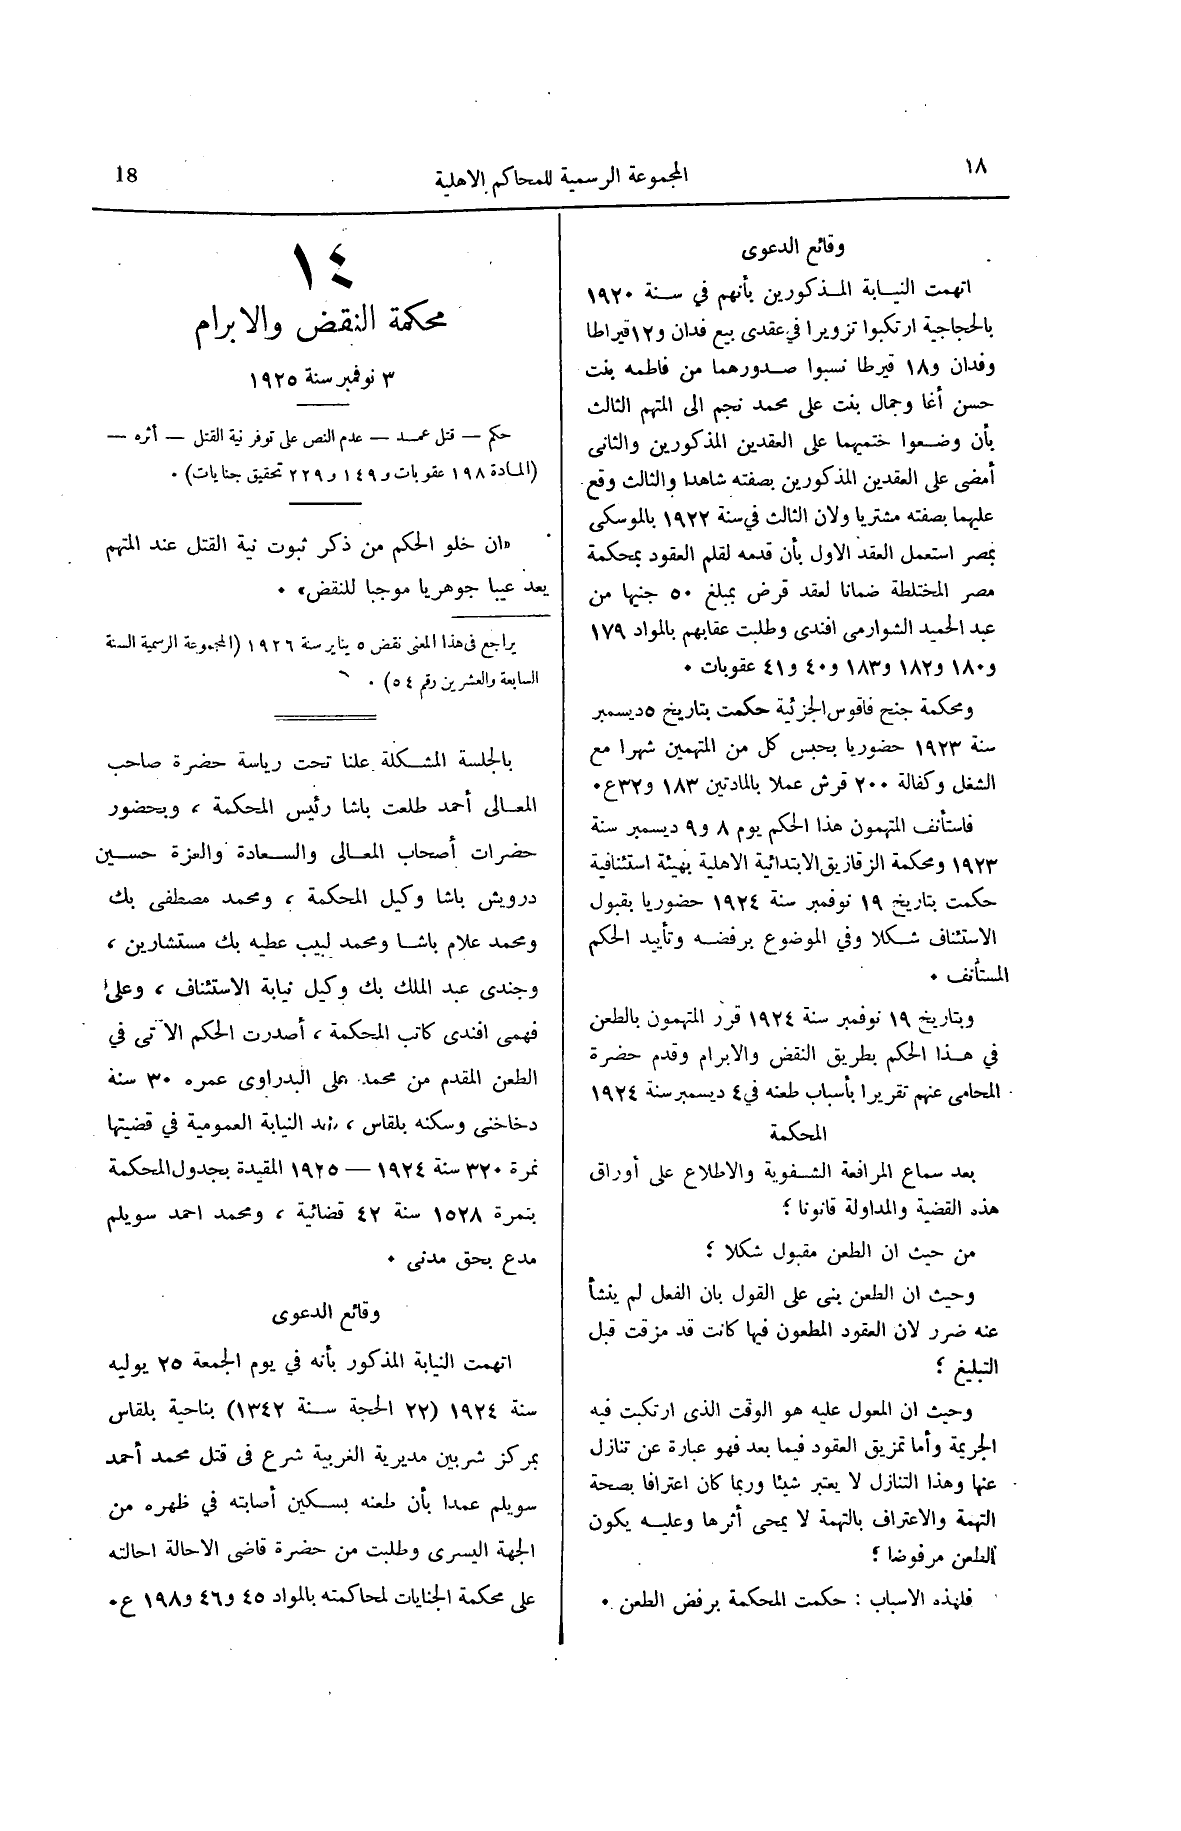 ١٨
المجموعة الرسمية للمحاكم الاهلية
18
وقائع الدعوى
اتهمت النيابة المذكورين بأنهم في سنة ١٩٢٠
بالحجاجية ارتكبوا تزويرا في عقدى بيع فدان و١٢ قيراطا
وفدان و١٨ قيرطا نسبوا صدورهما من فاطمه بنت
حسن أغا وجمال بنت على محمد نجم الى المتهم الثالث
بأن وضعوا ختميهما على العقدين المذكورين والثانى
أمضى على العقدين المذكورين بصفته شاهدا والثالث وقع
عليهما بصفته مشتريا ولان الثالث في سنة ١٩٢٢ بالموسكى
بمصر استعمل العقد الاول بأن قدمه لقلم العقود بمحكمة
مصر المختلطة ضمانا لعقد قرض بمبلغ ٥٠ جنيها من
عبد الحميد الشوارمى افندى وطلبت عقابهم بالمواد ١٧٩
و١٨٠ و١٨٢ و١٨٣ و٤٠ و٤١ عقوبات ٠
ومحكمة جنح فاقوس الجزئية حكمت بتاريخ ٥ ديسمبر
سنة ١٩٢٣ حضوريا بحبس كل من المتهمين شهرا مع
الشغل وكفالة ٢٠٠ قرش عملا بالمادتين ١٨٣ و٣٢ع٠
فاستأنف المتهمون هذا الحكم يوم ٨ و٩ ديسمبر سنة
١٩٢٣ ومحكمة الزقازيق الابتدائية الاهلية بهيئة استئنافية
حكمت بتاريخ ١٩ نوفمبر سنة ١٩٢٤ حضوريا بقبول
الاستئناف شكلا وفي الموضوع برفضه وتأييد الحكم
المستأنف ٠
وبتاريخ ١٩ نوفمبر سنة ١٩٢٤ قرر المتهمون بالطعن
في هذا الحكم بطريق النقض والابرام وقدم حضرة
المحامى عنهم تقريرا بأسباب طعنه في ٤ ديسمبر سنة ١٩٢٤
المحكمة
بعد سماع المرافعة الشفوية والاطلاع على أوراق
هذه القضية والمداولة قانونا ؛
من حيث ان الطعن مقبول شكلا ؛
وحيث ان الطعن بنى على القول بان الفعل لم ينشأ
عنه ضرر لان العقود المطعون فيها كانت قد مزقت قبل
التبليغ ؛
وحيث ان المعول عليه هو الوقت الذى ارتكبت فيه
الجريمة وأما تمزيق العقود فيما بعد فهو عبارة عن تنازل
عنها وهذا التنازل لا يعتبر شيئا وربما كان اعترافا بصحة
التهمة والاعتراف بالتهمة لا يمحى أثرها وعليه يكون
الطعن مرفوضا ؛
فلهذه الاسباب : حكمت المحكمة برفض الطعن ٠
١٤
محكمة النقض والابرام
٣ نوفمبر سنة ١٩٢٥
حكم — قتل عمد — عدم النص على توفر نية القتل — أثره —
(المادة ١٩٨ عقوبات و١٤٩ و٢٢٩ تحقيق جنايات) ٠
«ان خلو الحكم من ذكر ثبوت نية القتل عند المتهم
يعد عيبا جوهريا موجبا للنقض» ٠
يراجع فى هذا المعنى نقض ٥ يناير سنة ١٩٢٦ (المجموعة الرسمية السنة
السابعة والعشرين رقم ٥٤) ٠
بالجلسة المشكلة علنا تحت رياسة حضرة صاحب
المعالى أحمد طلعت باشا رئيس المحكمة ، وبحضور
حضرات أصحاب المعالى والسعادة والعزة حسين
درويش باشا وكيل المحكمة ، ومحمد مصطفى بك
ومحمد علام باشا ومحمد لبيب عطيه بك مستشارين ،
وجندى عبد الملك بك وكيل نيابة الاستئناف ، وعلى
فهمى افندى كاتب المحكمة ، أصدرت الحكم الآتى في
الطعن المقدم من محمد على البدراوى عمره ٣٠ سنة
دخاخنى وسكنه بلقاس ، ضد النيابة العمومية في قضيتها
نمرة ٣٢٠ سنة ١٩٢٤ — ١٩٢٥ المقيدة بجدول المحكمة
بنمرة ١٥٢٨ سنة ٤٢ قضائية ، ومحمد احمد سويلم
مدع بحق مدنى ٠
وقائع الدعوى
اتهمت النيابة المذكور بأنه في يوم الجمعة ٢٥ يوليه
سنة ١٩٢٤ (٢٢ الحجة سنة ١٣٤٢) بناحية بلقاس
بمركز شربين مديرية الغربية شرع فى قتل محمد أحمد
سويلم عمدا بأن طعنه بسكين أصابته في ظهره من
الجهة اليسرى وطلبت من حضرة قاضى الاحالة احالته
على محكمة الجنايات لمحاكمته بالمواد ٤٥ و٤٦ و١٩٨ ع٠